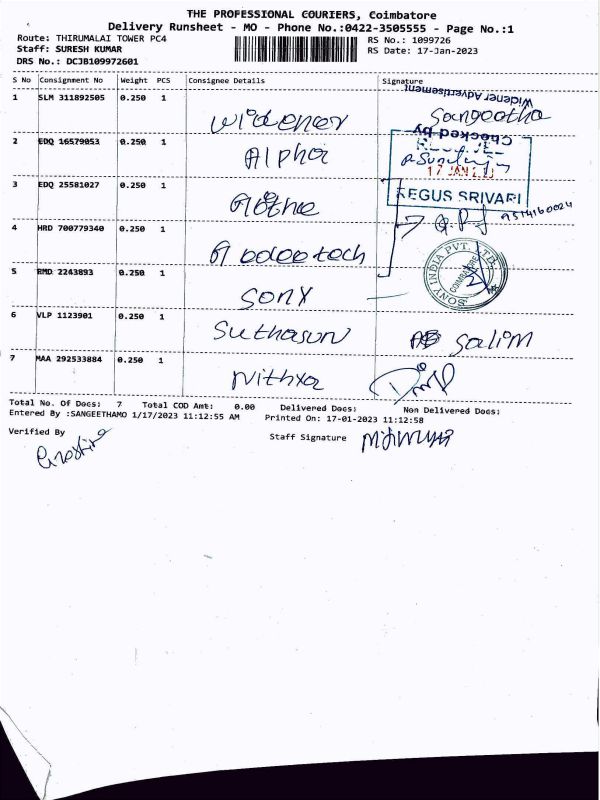 THE PROFESSIONAL COURIERS, Coimbatore
Delivery Runsheet - MO - Phone No.:0422-3505555 - Page No.:1
Route: THIRUMALAI TOWER PC4
RS No.: 1099726
Staff: SURESH KUMAR
RS Date: 17-Jan-2023
DRS No.: DCJB109972601
S No Consignment No Weight PCS Consignee Details Signature
Widener Advertisement
1 SLM 311892505 0.250 1 Widener Sangeetha
Checked by
2 EDQ 16579053 0.250 1 Alpha
17 JAN
3 EDQ 25581027 0.250 1
REGUS SRIVARI
9514160024
4 HRD 700779340 0.250 1
SONY INDIA PVT. LTD.
COIMBATORE
5 BMD 2243893 0.250 1 Sony
6 VLP 1123901 0.250 1 Suthasun Salim
7 MAA 292533884 0.250 1 Nithya
Total No. Of Docs: 7 Total COD Amt: 0.00 Delivered Docs: Non Delivered Docs:
Entered By :SANGEETHAMO 1/17/2023 11:12:55 AM Printed On: 17-01-2023 11:12:58
Verified By
Staff Signature